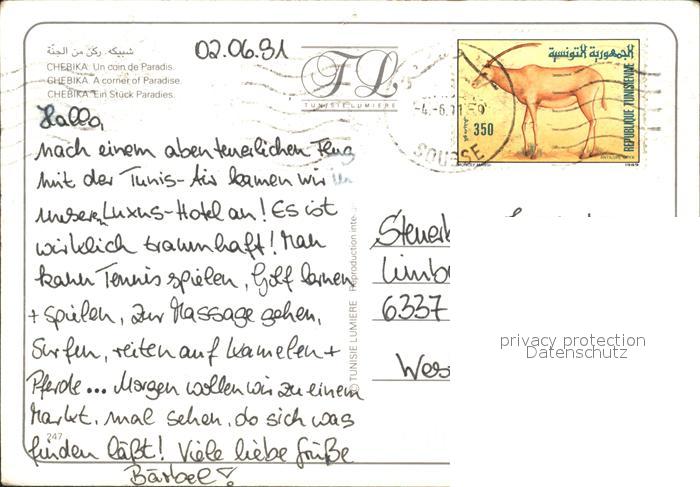 شبيكه. ركن من الجنّة
CHEBIKA. Un coin de Paradis.
CHEBIKA. A corner of Paradise.
CHEBIKA. Ein Stück Paradies.
02.06.91
TL
TUNISIE LUMIERE
الجمهورية التونسية
REPUBLIQUE TUNISIENNE
350
1989
-4.-6.91
SOUSSE
Hallo,
nach einem abenteuerlichen Flug
mit der Tunis-Air kamen wir in
unseren Luxus-Hotel an! Es ist
wirklich traumhaft! Man
kann Tennis spielen, Golf lernen
+ spielen, zur Massage gehen,
Surfen, reiten auf Kamelen +
Pferde... Morgen wollen wir zu einem
Markt, mal sehen, ob sich was
finden läßt! Viele liebe Grüße
Bärbel!
247
© TUNISIE LUMIERE Reproduction inte
6337
privacy protection
Datenschutz